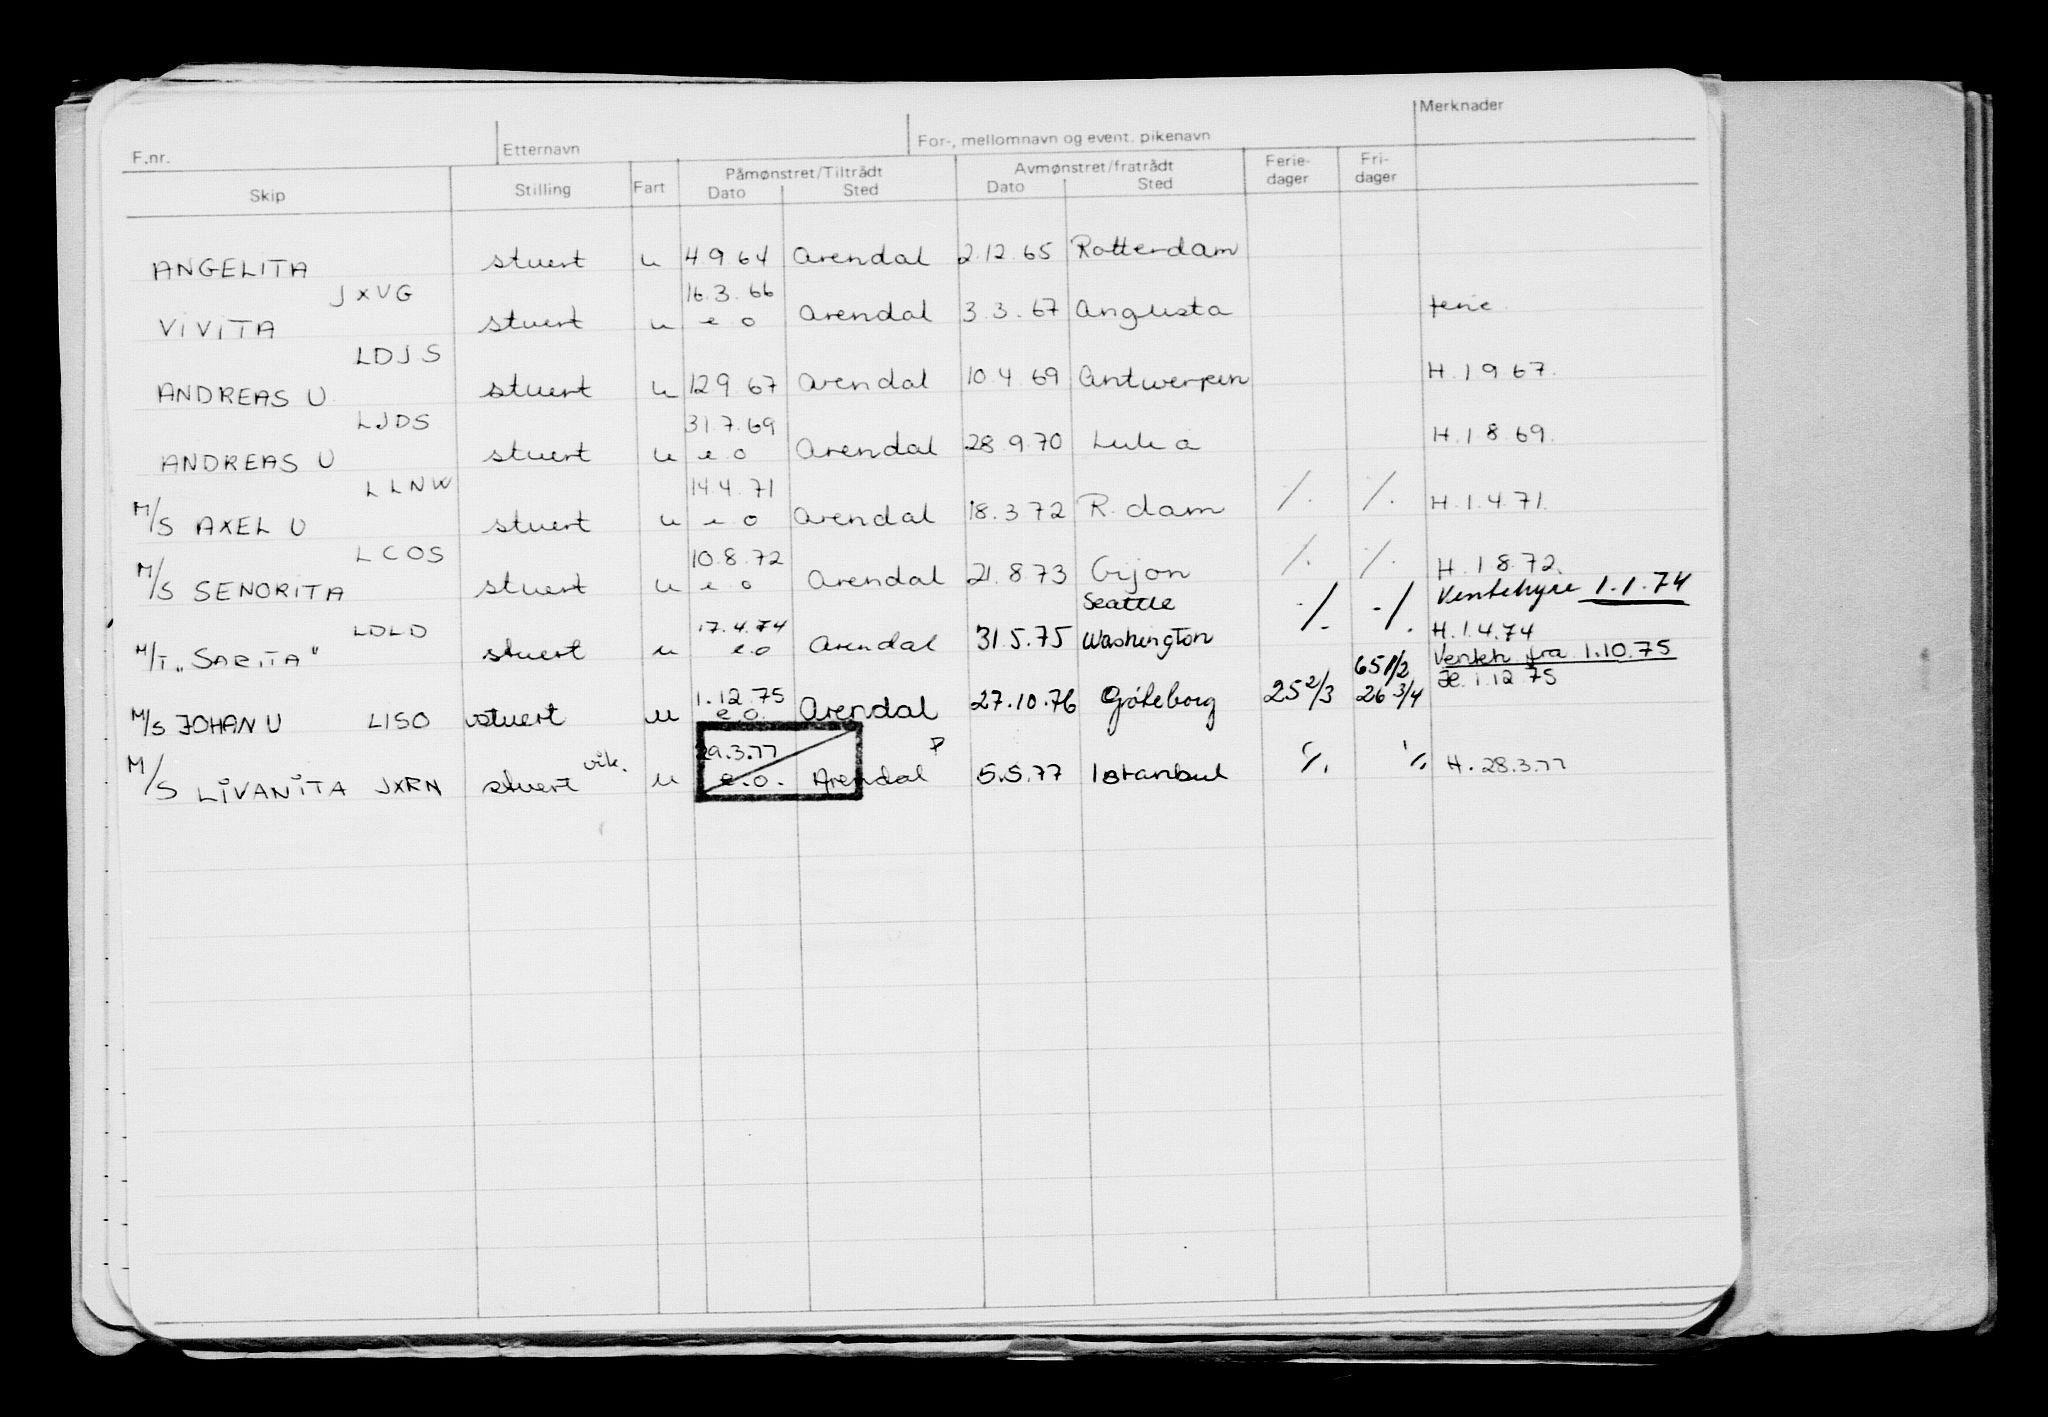 F.nr. Etternavn For-, mellomnavn og event. pikenavn Merknader
Skip Stilling Fart Påmønstret/Tiltrådt Dato Sted Avmønstret/fratrådt Dato Sted Ferie-dager Fri-dager
ANGELITA stuert u 4.9.64 Arendal 2.12.65 Rotterdam
JXVG 16.3.66
VIVITA stuert u e o Arendal 3.3.67 Angusta ferie
LDJS
ANDREAS U stuert u 12.9.67 Arendal 10.4.69 Antwerpen H.1.9.67.
LJDS 31.7.69
ANDREAS U stuert u e o Arendal 28.9.70 Luleå H.1.8.69.
LLNW 14.4.71
M/S AXEL U stuert u e o Arendal 18.3.72 R.dam ./. ./. H.1.4.71.
LCOS 10.8.72
M/S SENORITA stuert u e o Arendal 21.8.73 Gijon ./. ./. H.1.8.72.
Seattle ./. ./. Ventehyre 1.1.74
LDLD 17.4.74 H.1.4.74
M/T "SARITA" stuert u e.o Arendal 31.5.75 Washington Venteh. fra 1.10.75
1.12.75 65 1/2 H. 1.12.75
M/S JOHAN U LISO stuert u e.o. Arendal 27.10.76 Göteborg 25 2/3 26 3/4
29.3.77 P
M/S LIVANITA JXRN stuert vik. u e.o. Arendal 5.5.77 Istanbul ./. ./. H. 28.3.77